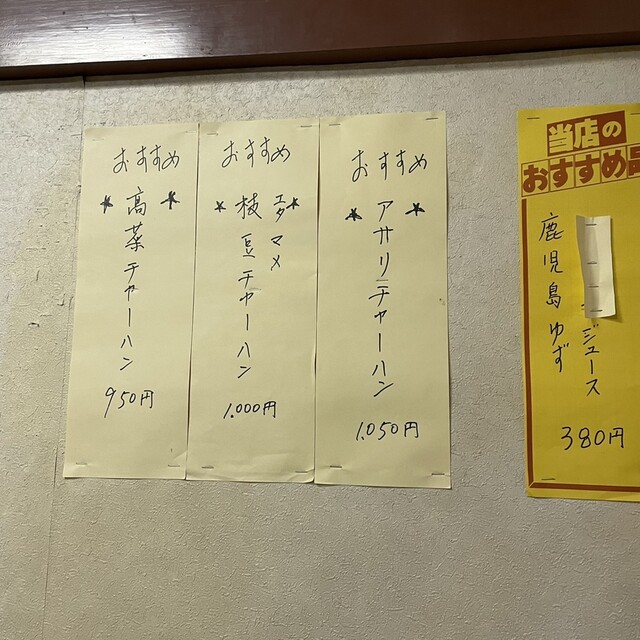 おすすめ
高菜チャーハン
950円
おすすめ
枝豆チャーハン
エダマメ
1,000円
おすすめ
アサリチャーハン
1,050円
当店の
おすすめ品
鹿児島ゆず
ジュース
380円